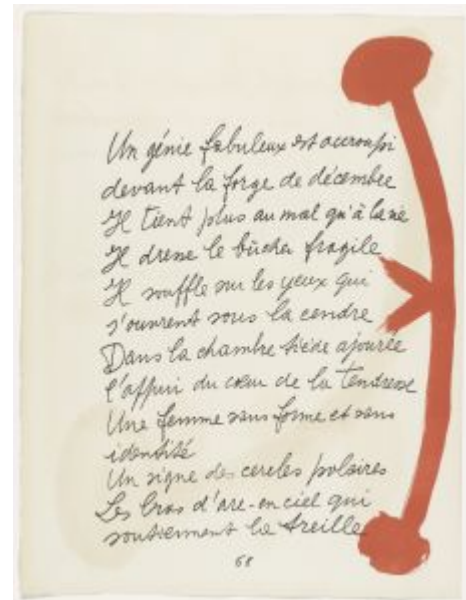 Un génie fabuleux est accroupi
devant la forge de décembre
Il tient plus au mal qu'à la vie
Il dresse le bûcher fragile
Il souffle sur les yeux qui
s'ouvrent sous la cendre
Dans la chambre tiède ajourée
l'appui du cœur de la tendresse
Une femme sans forme et sans
identité
Un signe des cercles polaires
Les bras d'arc-en-ciel qui
soutiennent la treille
68